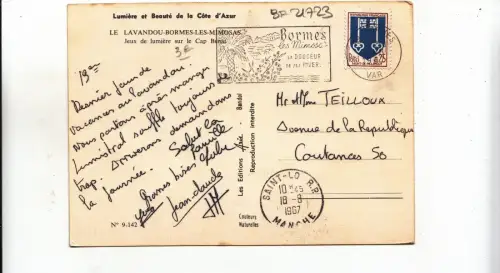 Lumière et Beauté de la Côte d'Azur
BF 21723
LE LAVANDOU-BORMES-LES-MIMOSAS
Jeux de lumière sur le Cap Bénat
3€
Dernier jour de
vacances au lavandou!
Nous partons après manger
Le mistral souffle toujours
trop. Arriverons demain dans
la journée. Salut la
famille
Bonnes bises
Jean-claude
N° 9-142
Les Editions
Bandol
Reproduction interdite
Couleurs
Naturelles
Bormes
les Mimosas
LA DOUCEUR
DE SES HIVERS
VAR
0,25
Mr et Mme TEILLOUX
Avenue de la République
Coutances 50
SAINT-LO R.P.
10 H 45
18-8
1967
MANCHE